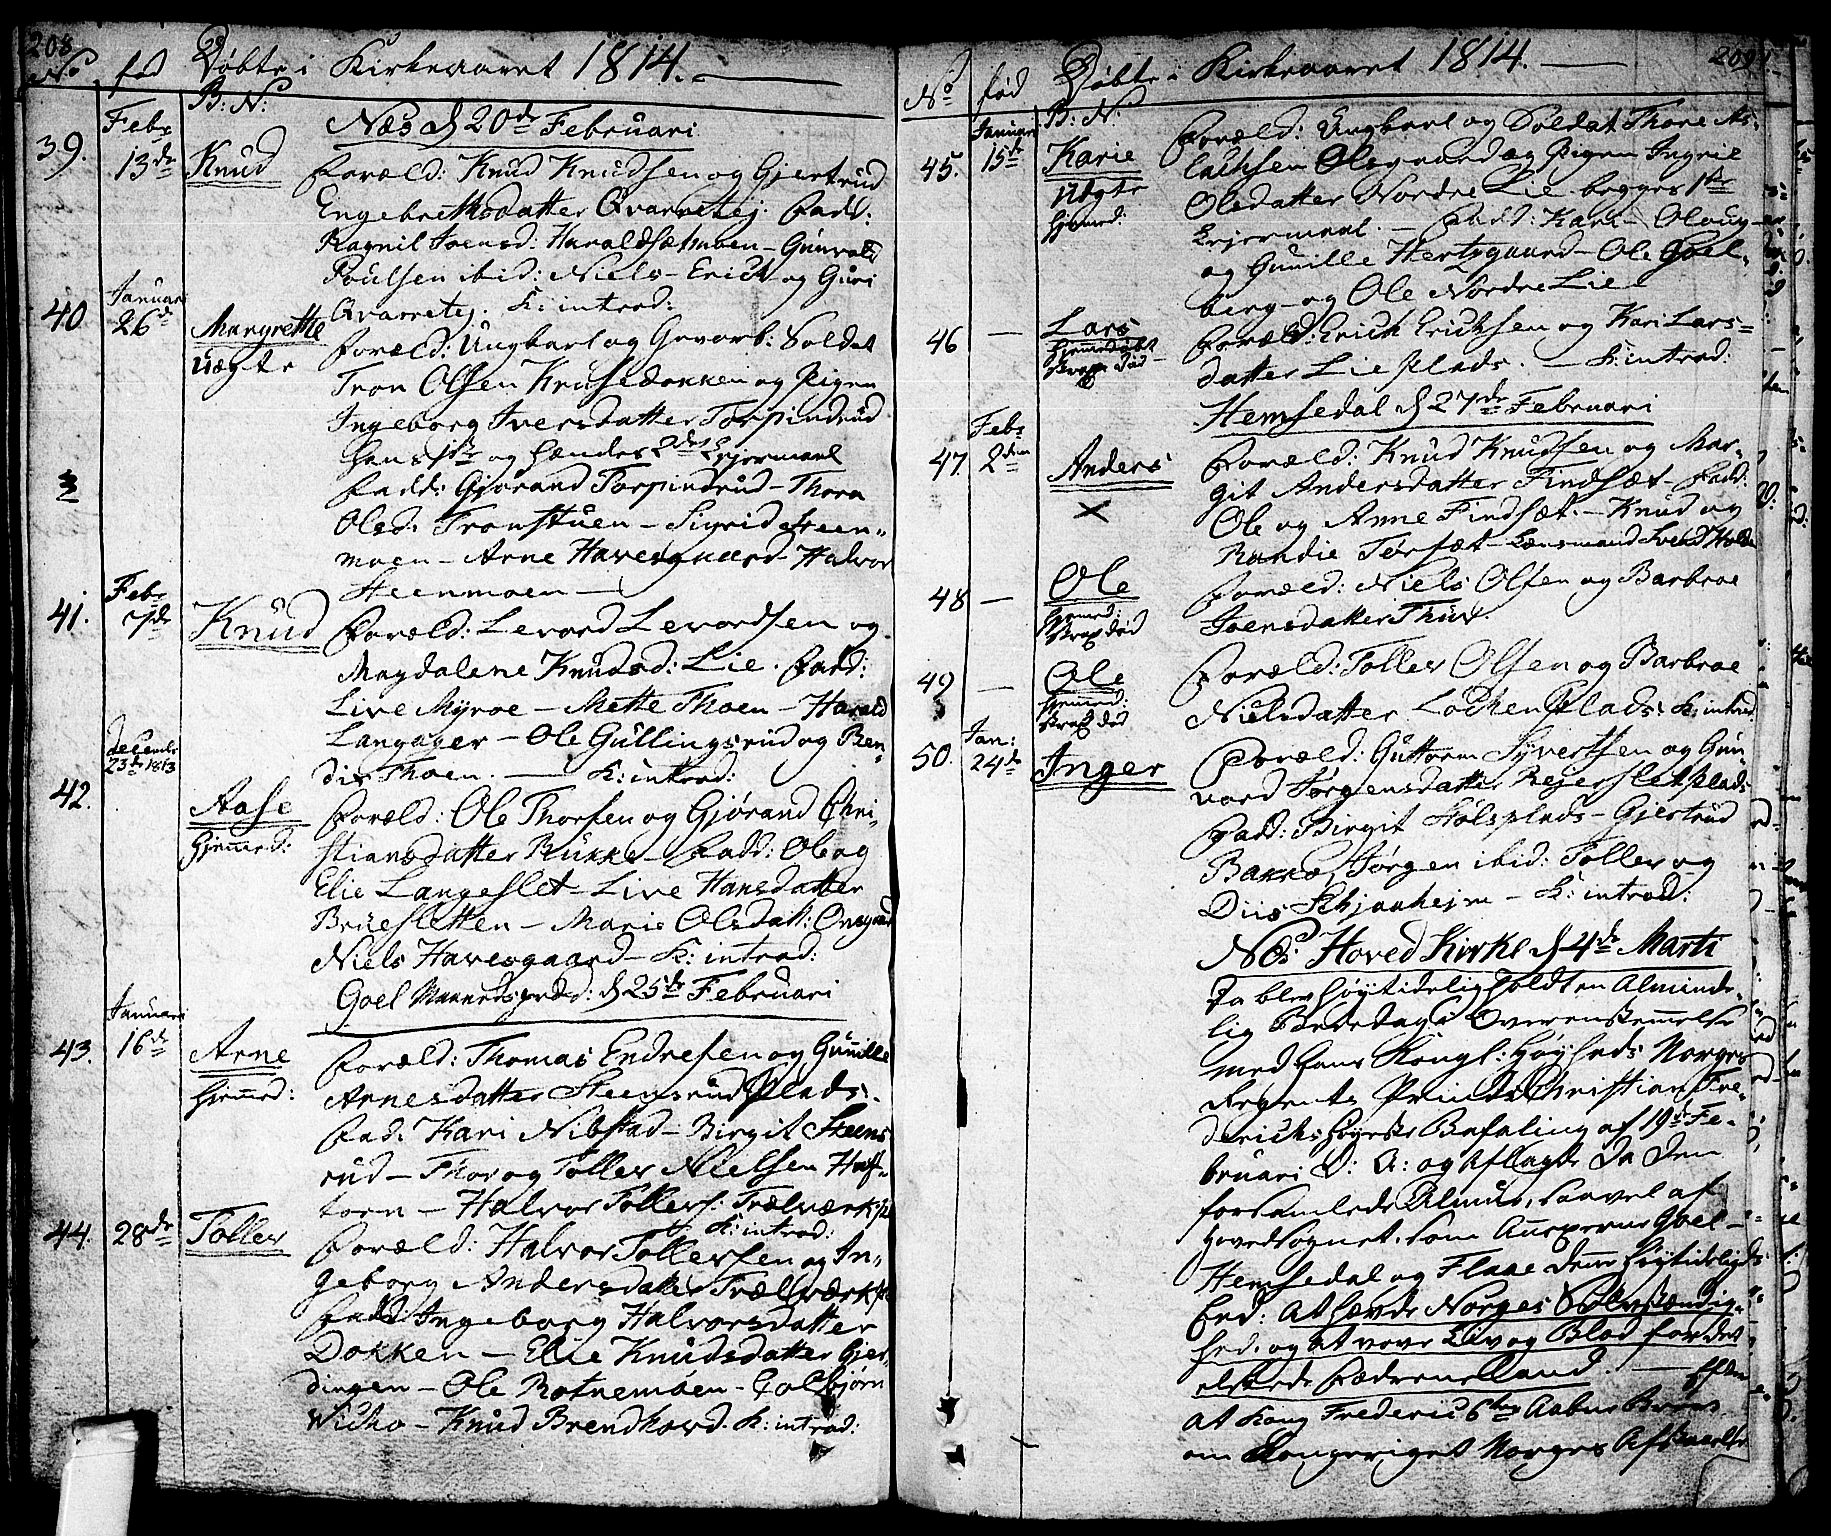 208
No fød Døbte i Kirkeaaret 1814.
B: N:
Næs d 20de Februari
39. Febr 13de Knud Foræld: Knud Knudsen og Gjertrud
Engebrethsdatter Qvarretej. Fadd:
Ragnil Joensd: Haraldsætmoen - Gunvold
Poulsen ibid: Niels - Erich og Guri
Qvarretej. K: introd:
40 Januar 26de Margrethe Uægte Foræld: Ungkarl og Gevorb: Soldat
Tron Olsen Knusedokken og Pigen
Ingeborg Iversdatter Torpindrud
Hans 1ste og Hendes 2det Lejermaal
Fadd: Gjørand Torpindrud - Thora
Olsd: Tronstuen - Sigrid Steen-
moen - Arne Havesgaard - Halvor
Steenmoen
41. Febr 7de Knud Foræld: Levord Levordsen og
Magdalene Knudsd: Lie. Fadd:
Live Myroe - Mette Thoen - Harald
Langager - Ole Gullingsrud og Ben-
dix Thoen. - K: introd:
42. Decembr 23de 1813 Aase Hjemmed: Foræld: Ole Thorsen og Gjørand Chri-
stiansdatter Rukke - Fadd: Ole og
Elie Langeslet - Live Hansdatter
Bruesletten - Marie Olsdatt:
Niels Havesgaard - K: introd:
Goel d 25de Februari
43. Januari 16de Arne Hjemmed: Foræld: Thomas Endresen og Gunille
Arnesdatter Steensrud Plads.
Fad: Kari Nibstad - Birgit Steens
rud - Thor og Toller Nielsen Huf-
torn - Halvor Tollefs: Trælværk
K: introd:
44. 28de Toller Foræld: Halvor Tollersen og In-
geborg Andersdatter Trælværk
Fadd Ingeborg Halvorsdatter
Dokken - Elie Knudsdatter Gjer-
dingen - Ole Rotnemoen - Golbjørn
Wicho - Knud Brenhovd. K: introd:
209
No fød Døbte i Kirkeaaret 1814.
B: N:
45. Januar 15de Karie Uægte Hjemmd: Foræld: Ungkarl og Soldat Thore As-
lachsen Olsgaard og Pigen Ingril
Olsdatter Nordre Lie begges 1ste
Lejermaal. - Fadd: Kari - Oloug
og Gunille Hertzgaard - Ole Goel-
berg - og Ole Nordre Lie
46 - Lars Hjemmedøbt Strax Død Foræld: Erich Erichsen og Kari Lars-
datter Lie Plads. - K: introd:
Hemsedal d 27de Februari
47. Febr 2den Anders Foræld: Knud Knudsen og Mar-
git Andersdatter Findsæt - Fadd:
Ole og Anne Findsæt. - Knud og
Randie Torsæt - Lensmand Svend Holde
48 - Ole Hjemmd: Strax død Foræld: Niels Olsen og Barbroe
Joensdatter Thuv.
49 - Ole Hjemmed: Strax død Foræld: Toller Olsen og Barbroe
Nielsdatter Lochen Plads: K: introd
50. Jan: 24de Inger Foræld: Guttorm Syvertsen og Gun-
vord Jørgensdatter Rejerslet plads
Fadd: Birgit Holsplads - Gjertrud
Bakke, Jørgen ibid: Toller og
Diis Skjønhejm - K: introd:
Næs Hoved Kirke d 4de Marti
Da blev høytidelig holdt en Alminde-
lig Bededag i Overenstemmelse
med hans Kongl: Høyheds Norges
Regents Prinds Christian Fre-
derichs høyeste Befaling af 19de Fe-
bruari D: A: og aflagde da den
forsamlede Almue, saavel af
hovedsognet, som Annexerne Goel -
Hemsedal og Flaae denne høytidelige
Eed: At hævde Norges Selvstændig-
hed, og at vove Liv og Blod for det
elskede Fødreneland. - Efter
at Kong Frederic 6tes Aabne Brev
om Kongeriget Norges Afstaaelse